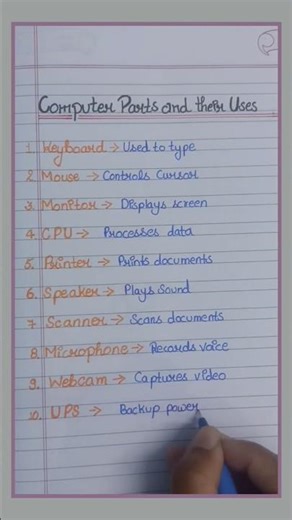 Computer Parts and their Uses
1. Keyboard → Used to type
2. Mouse → Controls Cursor
3. Monitor → Displays screen
4. CPU → Processes data
5. Printer → Prints documents
6. Speaker → Plays Sound
7. Scanner → Scans documents
8. Microphone → Records voice
9. Webcam → Captures video
10. UPS → Backup power